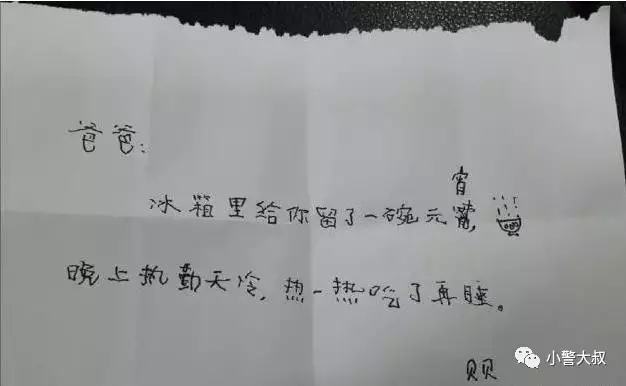 爸爸：
冰箱里给你留了一碗元宵，
晚上执勤天冷，热一热吃了再睡。
贝贝
小警大叔